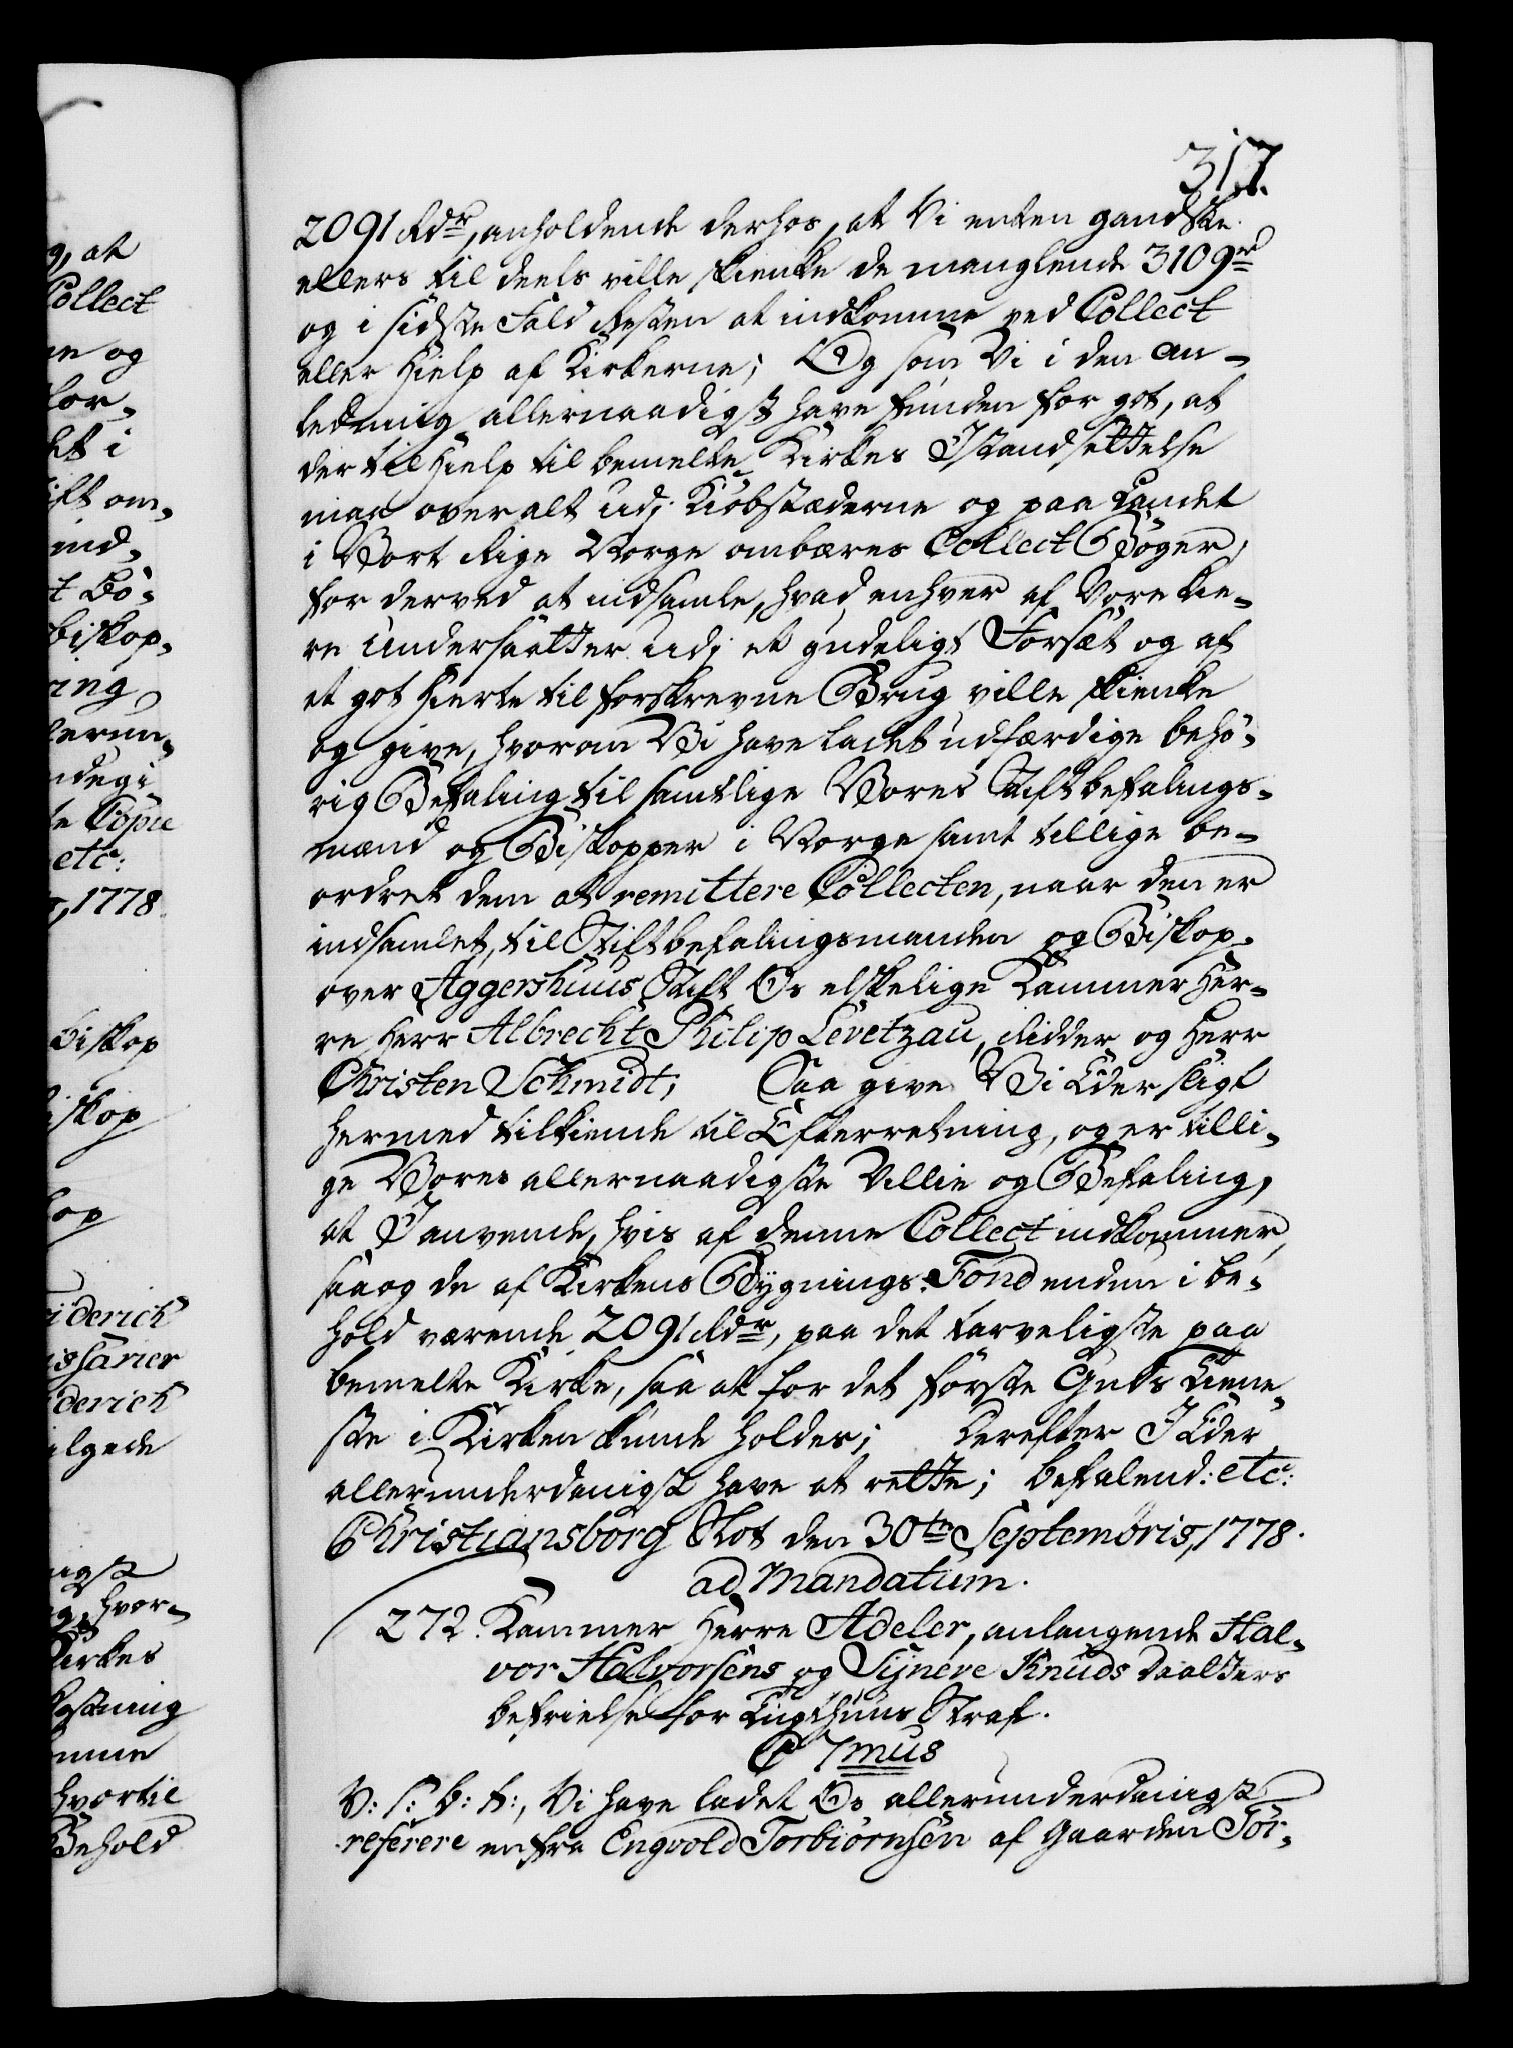 317.
2091 Rdr, anholdende derhos, at Vi enten gandske
ellers til deels ville skienke de manglende 3109 r
og i sidste Fald Resten at indkomme ved Collect
eller Hielp af Kirkerne; Og som Vi i den An-
ledning allernaadigst have funden for got, at
der til Hielp til bemelte Kirkes Istandsettelse
maa overalt udj Kiöbstæderne og paa Landet
i Vort Rige Norge ombæres Collect Böger,
for derved at indsamle, hvad enhver af Vore kie-
re Undersaatter udj et gudeligt Forsæt og af
et got Hierte til forskrevne Brug ville skienke
og give, hvorom Vi have ladet udfærdige behö-
rig Befaling til samtlige Vores Stiftbefalings-
mænd og Biskopper i Norge samt tillige be-
ordret dem at remittere Collecten, naar den er
indsamlet, til Stiftbefalingsmanden og Biskop
over Aggershuus Stift Os elskelige Kammer Her-
re Herr Albrecht Philip Levetzau, Ridder og Herr
Christen Schmidt; Saa give Vi Eder sligt
hermed tilkiende til Efterretning, og er tilli-
ge Vores allernaadigste Villie og Befaling,
at I anvende, hvis af denne Collect indkommer,
saa og de af Kirkens Bygnings-Fond endnu i be-
hold værende 2091 Rdr, paa det tarveligste paa
bemelte Kirke, saa at for det förste Guds Tiene-
ste i Kirken kunde holdes; Derefter I Eder
allerunderdanigst have at rette; befalend: etc:
Christiansborg Slot den 30te Septembris, 1778.
ad Mandatum.
272. Kammer Herre Adeler, anlangende Hal-
vor Halvorsens og Synere Knuds Daatters
befrielse for Tugthuus Straf.
C 7mus
V: S: G: T:, Vi have ladet Os allerunderdanigst
referere en fra Engvold Torbiörnsen af Gaarden Tör-
g, at
Collect
ne og
for-
et i
ift om-
ind-
t Bö-
biskop-
ring
lerun-
ndegi-
te Copie
etc:
1778
Biskop
iskop
kop
riderich
issarier
iderich
ilgede
nigst
g, hvor-
Kirkes
kostning
omme
hvortil
Behold